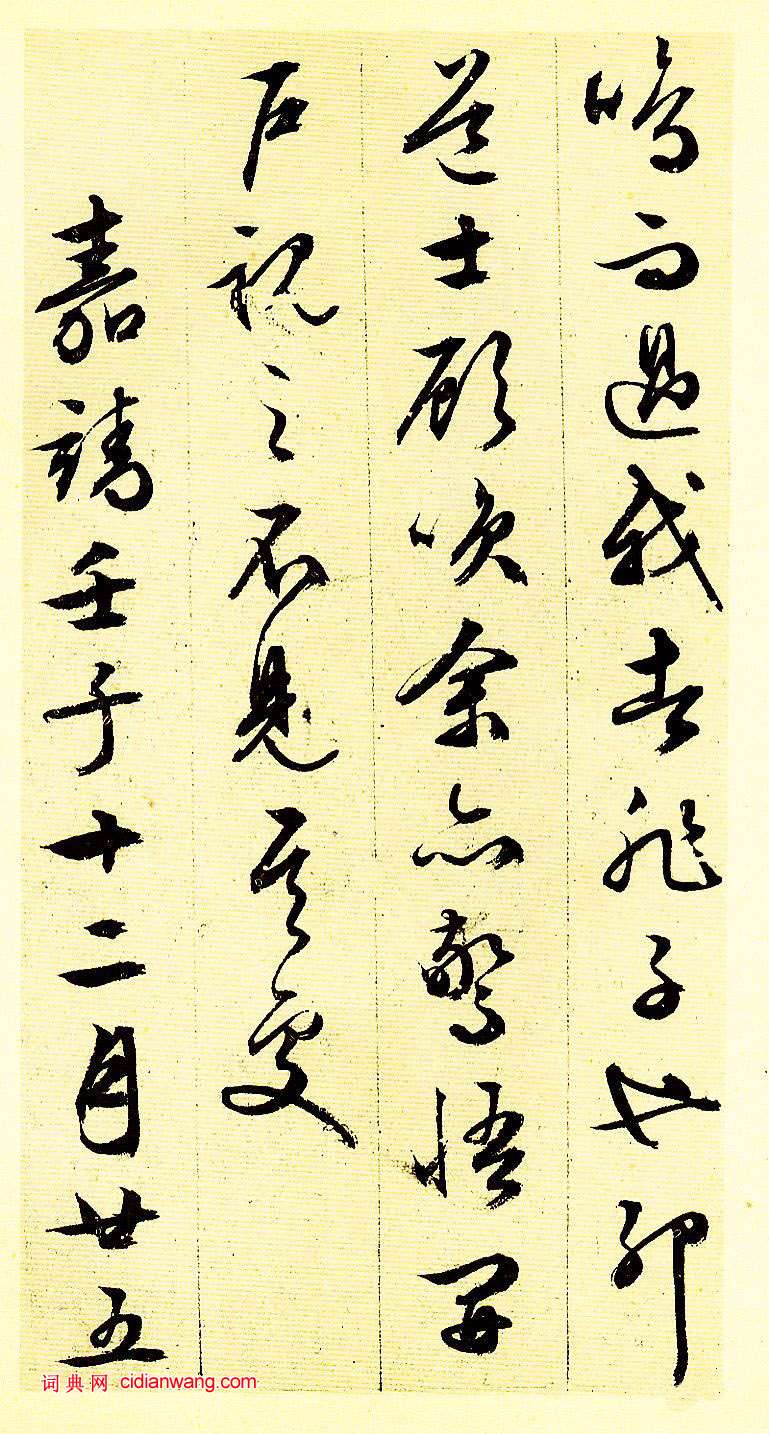 鳴而過我者非子也卯
道士顧咲余亦驚悟開
户視之不見其處
嘉靖壬子十二月廿五
词典网 cidianwang.com